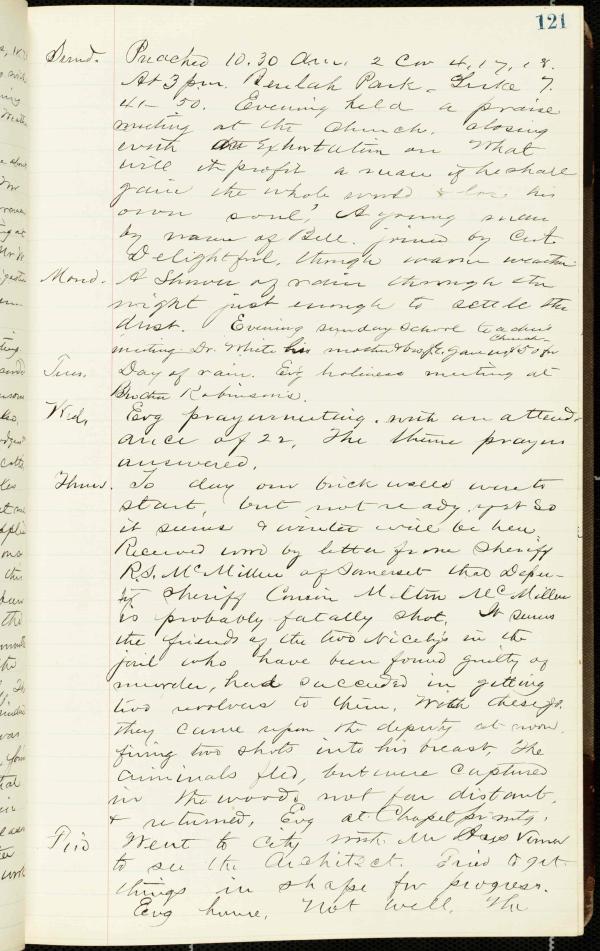 121
Sund. Preached 10.30 Am. 2 Cor 4, 17, 18.
At 3 pm. Beulah Park - Luke 7.
41-50. Evening held a praise
meeting at the church, closing
with an Exhortation on What
will it profit a man if he shall
gain the whole world & lose his
own soul,' A young man
by name of Bell. joined by Cert.
Delightful, though warm weather.
Mond. A Shower of rain through the
night just enough to settle the
dust. Evening Sunday School teachers
meeting Dr. White his mother
Tues. Day of rain. Evg holiness meeting at
Brother Robinson's.
Wed, Evg prayermeeting. with an attend-
ance of 22, The theme prayers
answered.
Thur. To day our brick walls were to
start, but not ready yet so
it seems & winter will be here
Received word by letter from Sheriff
R.S. McMillen of Somerset that Depu-
ty Sheriff Cousin Milton McMillen
is probably fatally shot. It seems
the friends of the two Nicelys in the
jail who have been found guilty of
murder, had succeeded in getting
two revolvers to them. With these
they came upon the deputy at noon,
firing two shots into his breast, The
criminals fled, but were captured
in the woods not far distant,
& returned, Evg at Chapel pr mtg.
Frid Went to city with Mr Verner
to see the Architect. Tried to get
things in shape for progress.
Evg home, Not well. The